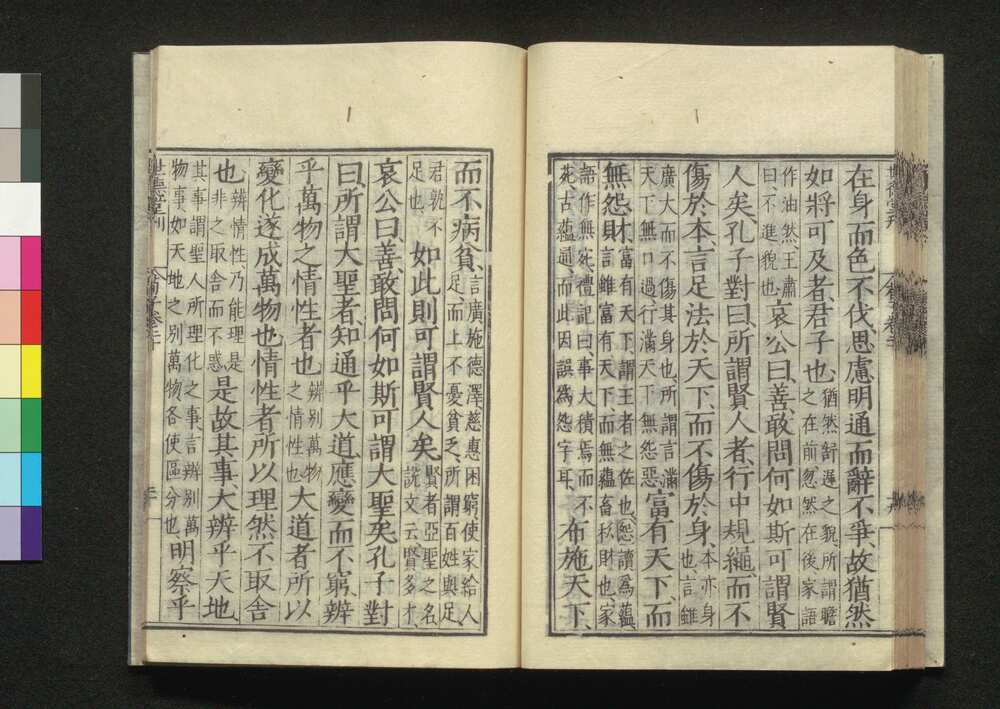 在身而色不伐思慮明通而辭不爭故猶然
如將可及者君子也猶然舒遲之貌所謂瞻之在前忽然在後家語
作油然王肅曰不進貌也哀公曰善敢問何如斯可謂賢
人矣孔子對曰所謂賢人者行中規繩而不
傷於本言足法於天下而不傷於身本亦身也言雖
廣大而不傷其身也所謂言滿天下無口過行滿天下無怨惡富有天下而
無怨財富有天下謂王者之佐也怨讀爲蘊言雖富有天下而無蘊畜私財也家
語作無宛禮記曰事大積焉而不苑古蘊通而此因誤爲怨字耳布施天下
而不病貧言廣施德澤慈惠困窮使家給人足而上不憂貧乏所謂百姓與足
君孰不足也如此則可謂賢人矣賢者亞聖之名說文云賢多才
哀公曰善敢問何如斯可謂大聖矣孔子對
曰所謂大聖者知通乎大道應變而不窮辨
乎萬物之情性者也辨別萬物之情性也大道者所以
變化遂成萬物也情性者所以理然不取舍
也辨情性乃能理是非之取舍而不惑是故其事大辨乎天地
其事謂聖人所理化之事言辨別萬物事如天地之別萬物各使區分也明察乎
世德堂刊